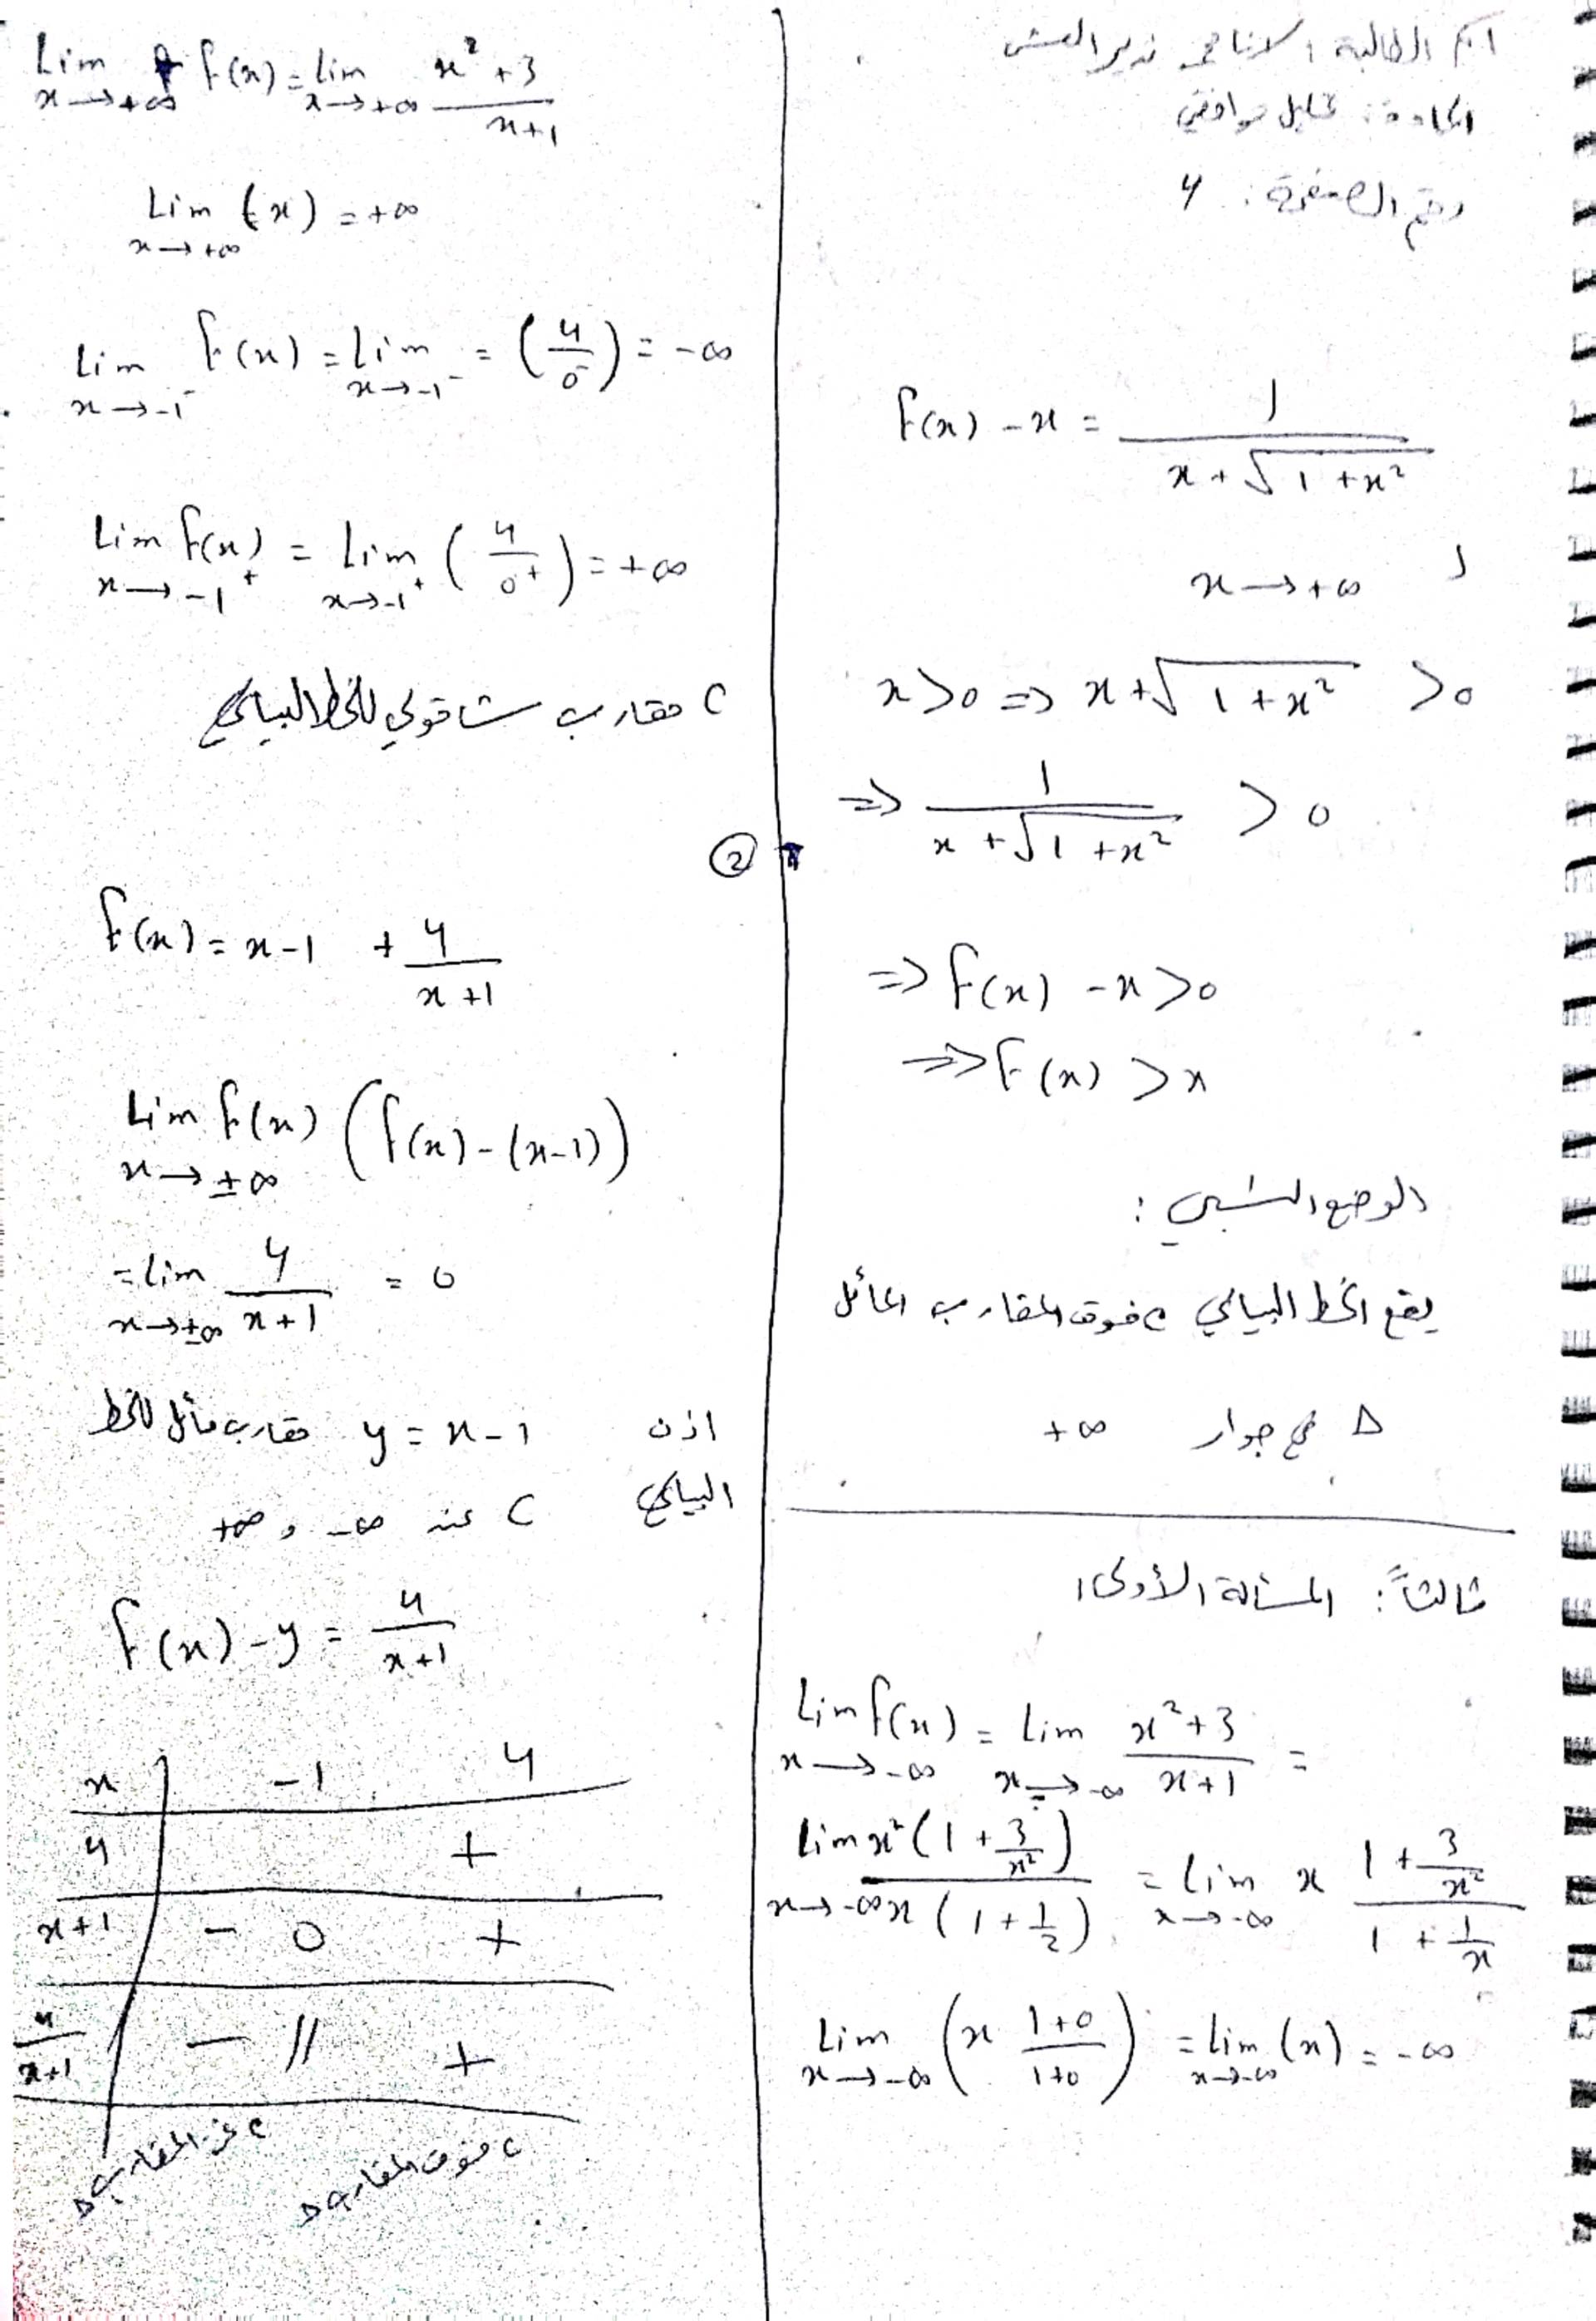 اسم الطالبة: الانا محمد نذير العش
المادة: تحليل توافقي
رقم الصفحة: 4
f(x) - x = 1 / (x + √(1 + x²))
x → +∞ لـ
x > 0 => x + √(1 + x²) > 0
=> 1 / (x + √(1 + x²)) > 0
=> f(x) - x > 0
=> f(x) > x
الوضع النسبي:
يقع الخط البياني C فوق المقارب المائل
Δ في جوار +∞
ثالثاً: المسألة الأولى:
Lim f(x) x→-∞ = Lim x→-∞ (x² + 3) / (x + 1) =
Lim x→-∞ x²(1 + 3/x²) / x(1 + 1/2) = Lim x→-∞ x (1 + 3/x²) / (1 + 1/x)
Lim x→-∞ (x (1+0)/(1+0)) = Lim x→-∞ (x) = -∞
Lim x→+∞ f(x) = Lim x→+∞ (x² + 3) / (x+1)
Lim x→+∞ (x) = +∞
Lim x→-1⁻ f(x) = Lim x→-1⁻ = (4/0⁻) = -∞
Lim x→-1⁺ f(x) = Lim x→-1⁺ (4/0⁺) = +∞
مقارب شاقولي للخط البياني C
②
f(x) = x - 1 + 4/(x + 1)
Lim x→±∞ f(x) (f(x) - (x-1))
= Lim x→±∞ 4/(x+1) = 0
اذن y = x - 1 مقارب مائل للخط
البياني C عند -∞ و +∞
f(x) - y = 4/(x+1)
x -1 4
4 +
x+1 - 0 +
4/(x+1) - || +
C تحت المقارب Δ C فوق المقارب Δ